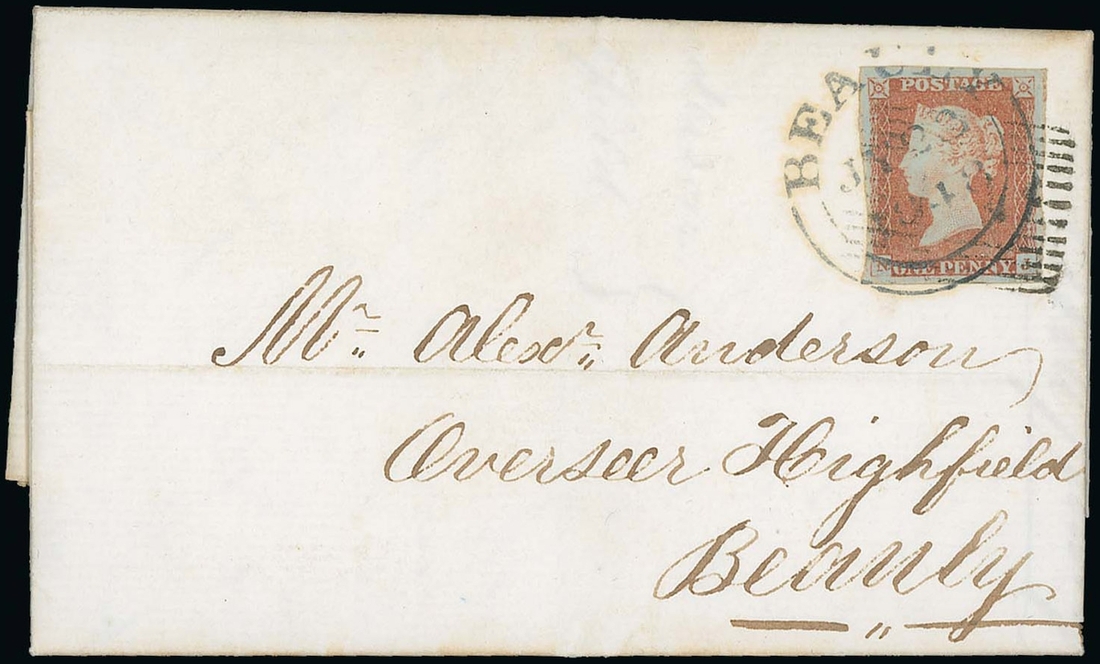 BEAULY
POSTAGE
N ONE PENNY
Mr. Alexr. Anderson
Overseer Highfield
Beauly